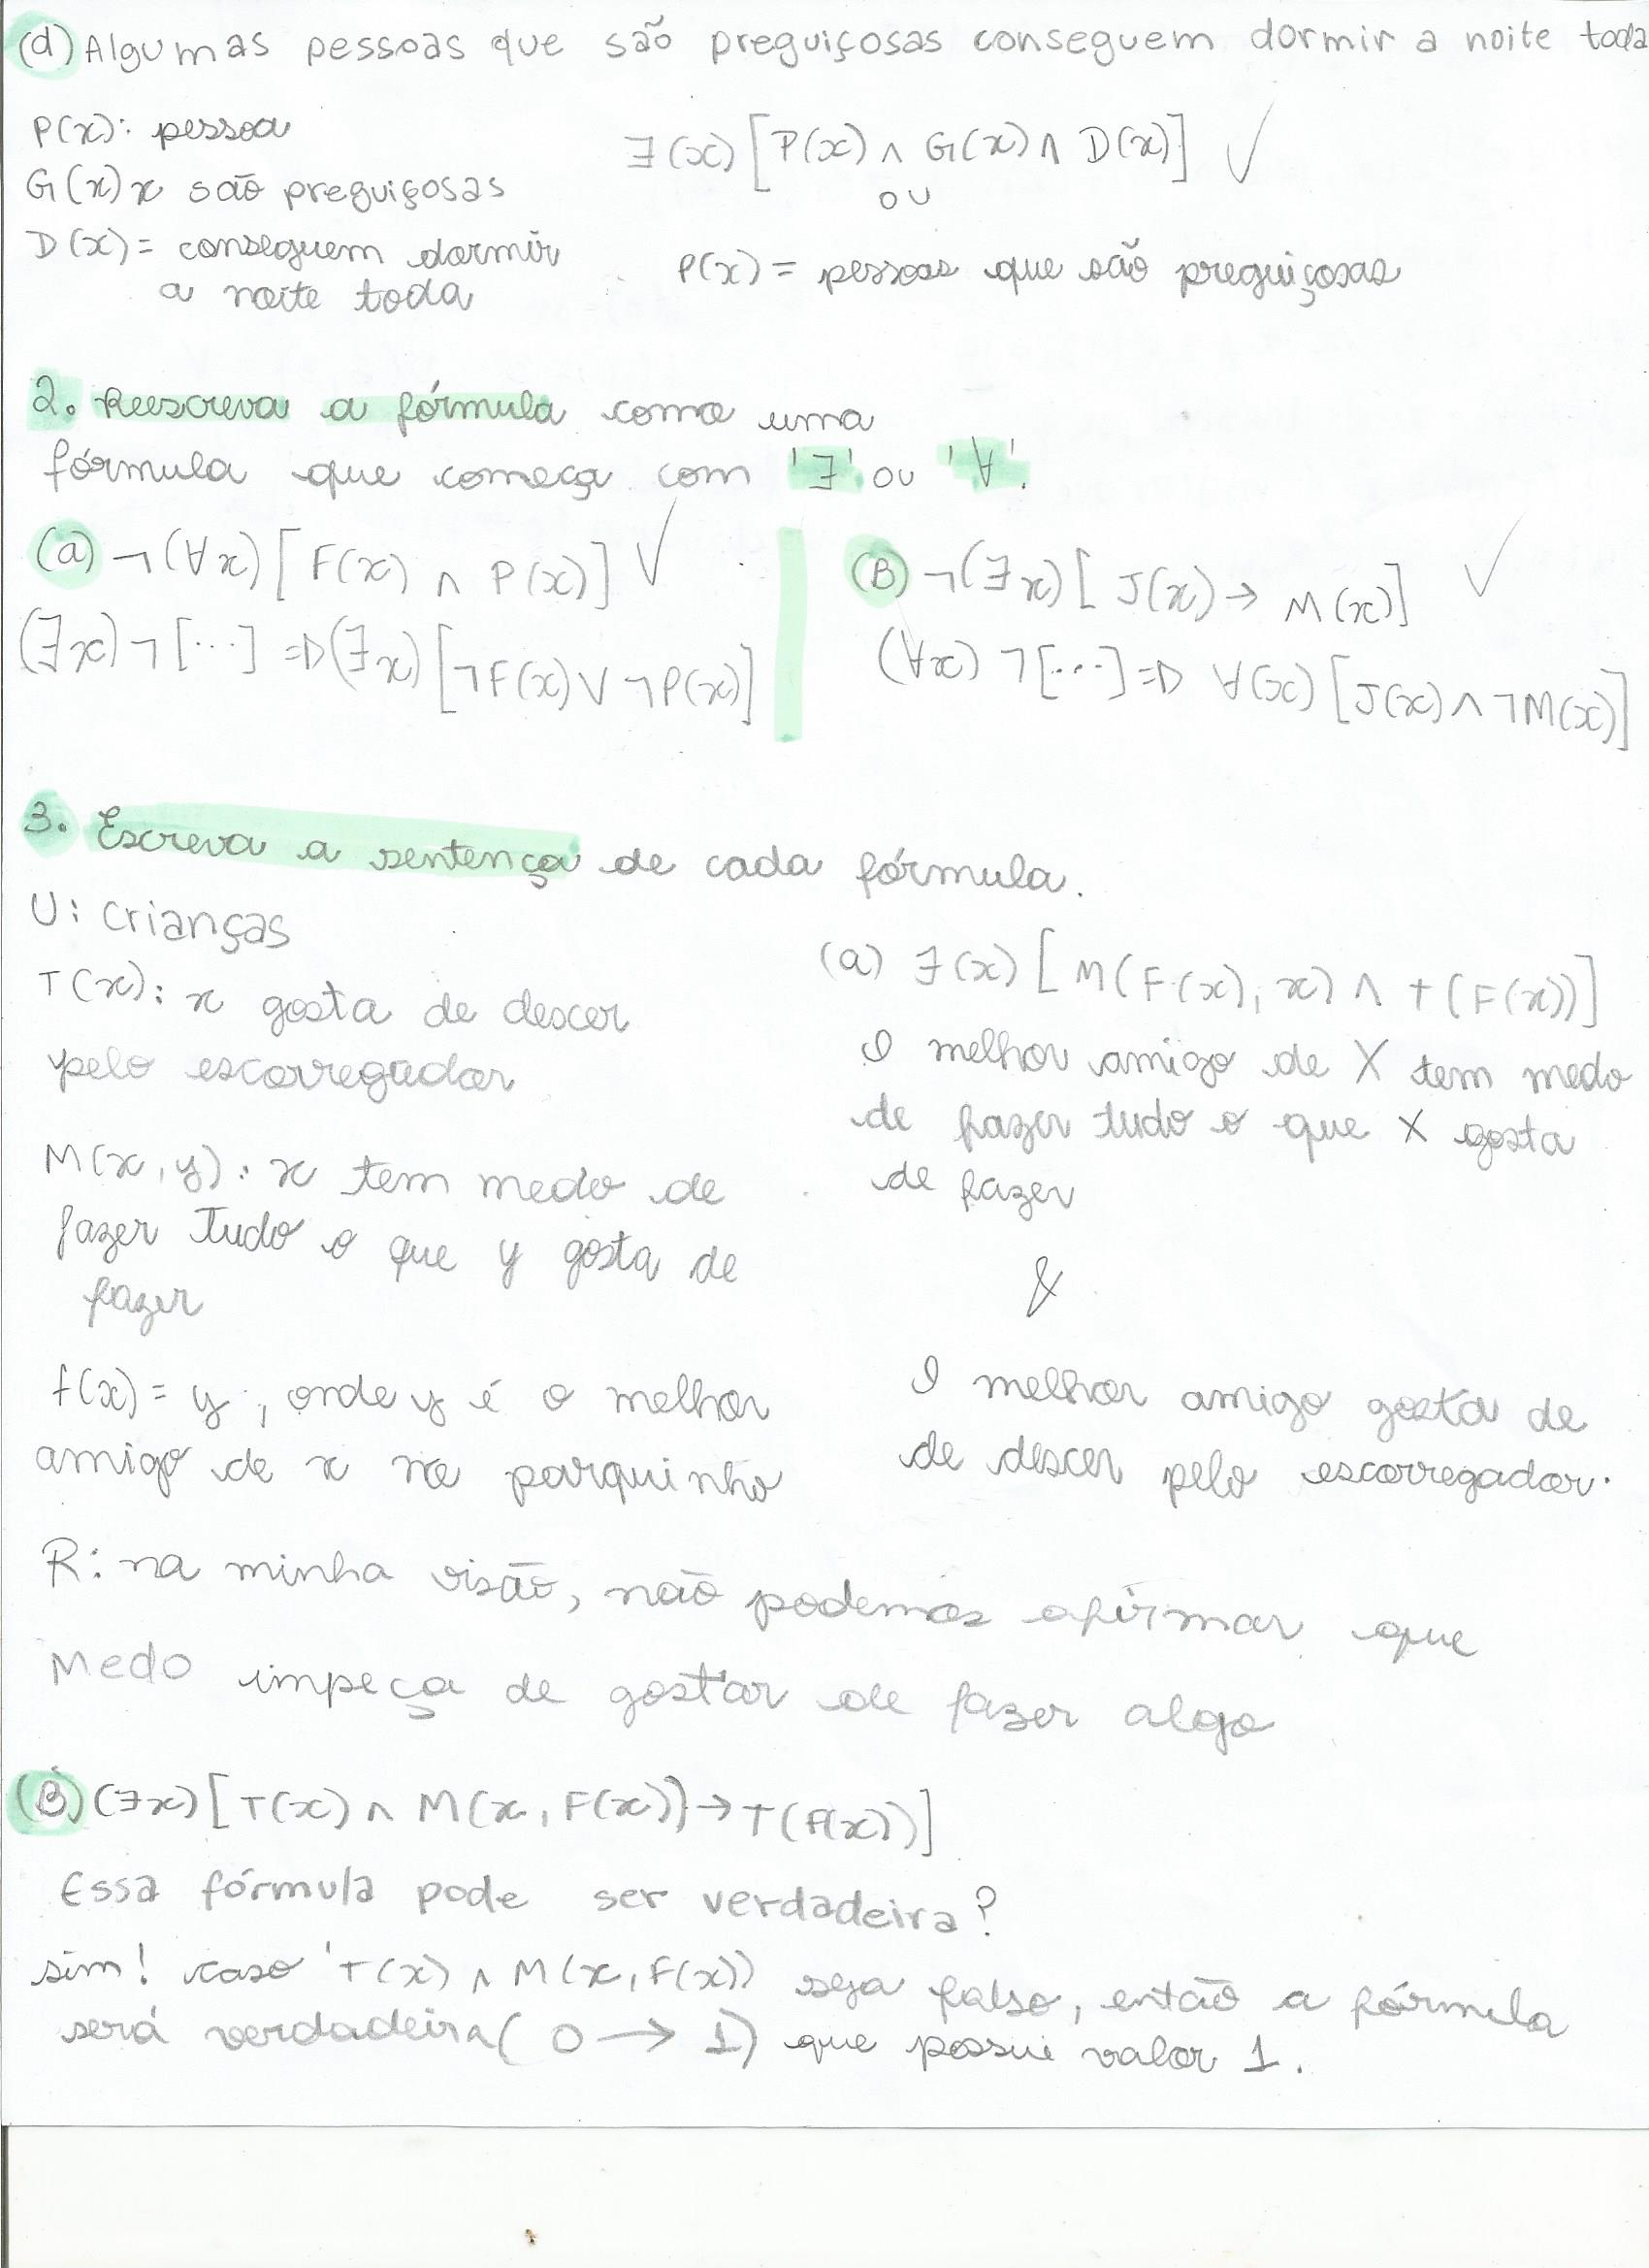 (d) Algumas pessoas que são preguiçosas conseguem dormir a noite toda
P(x): pessoa
G(x) x são preguiçosas
D(x) = conseguem dormir
a noite toda
∃(x) [P(x) ∧ G(x) ∧ D(x)] ✓
ou
P(x) = pessoas que são preguiçosas
2. Reescreva a fórmula como uma
fórmula que começa com '∃' ou '∀'.
(a) ¬(∀x) [F(x) ∧ P(x)] ✓
(∃x) ¬ [...] => (∃x) [¬F(x) ∨ ¬P(x)]
(B) ¬(∃x) [J(x) → M(x)] ✓
(∀x) ¬[...] => ∀(x) [J(x) ∧ ¬M(x)]
3. Escreva a sentença de cada fórmula.
U: crianças
T(x): x gosta de descer
pelo escorregador
M(x, y): x tem medo de
fazer tudo o que y gosta de
fazer
f(x) = y, onde y é o melhor
amigo de x no parquinho
(a) ∃(x) [M(F(x), x) ∧ T(F(x))]
O melhor amigo de X tem medo
de fazer tudo o que X gosta
de fazer
&
O melhor amigo gosta de
de descer pelo escorregador.
R: na minha visão, não podemos afirmar que
Medo impeça de gostar de fazer algo
(B) (∃x) [T(x) ∧ M(x, F(x)) → T(F(x))]
Essa fórmula pode ser verdadeira?
sim! caso 'T(x) ∧ M(x, F(x)) seja falso, então a fórmula
será verdadeira (0 → 1) que possui valor 1.